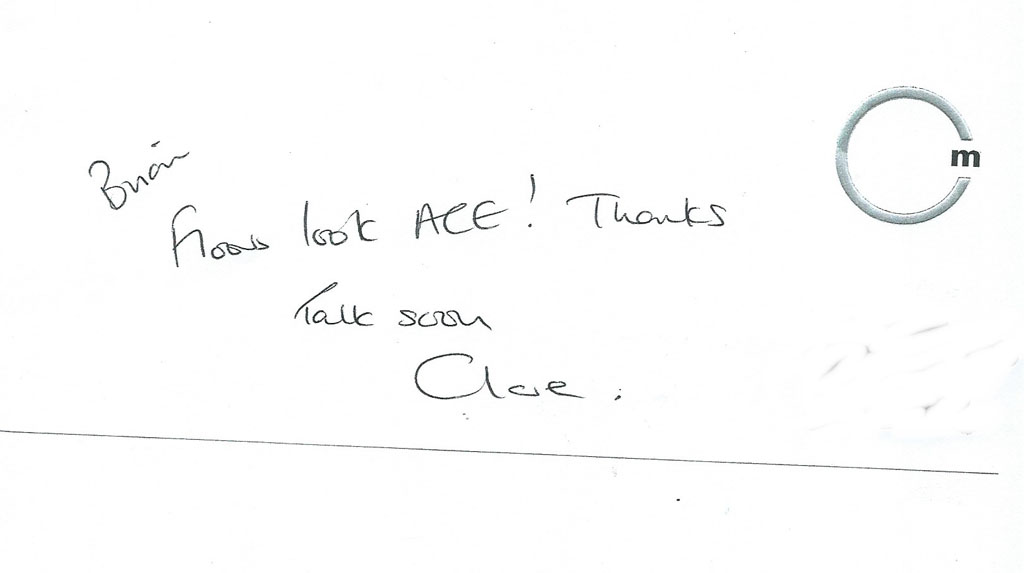 Brian
Floors look ACE! Thanks
Talk soon
Clare.
m